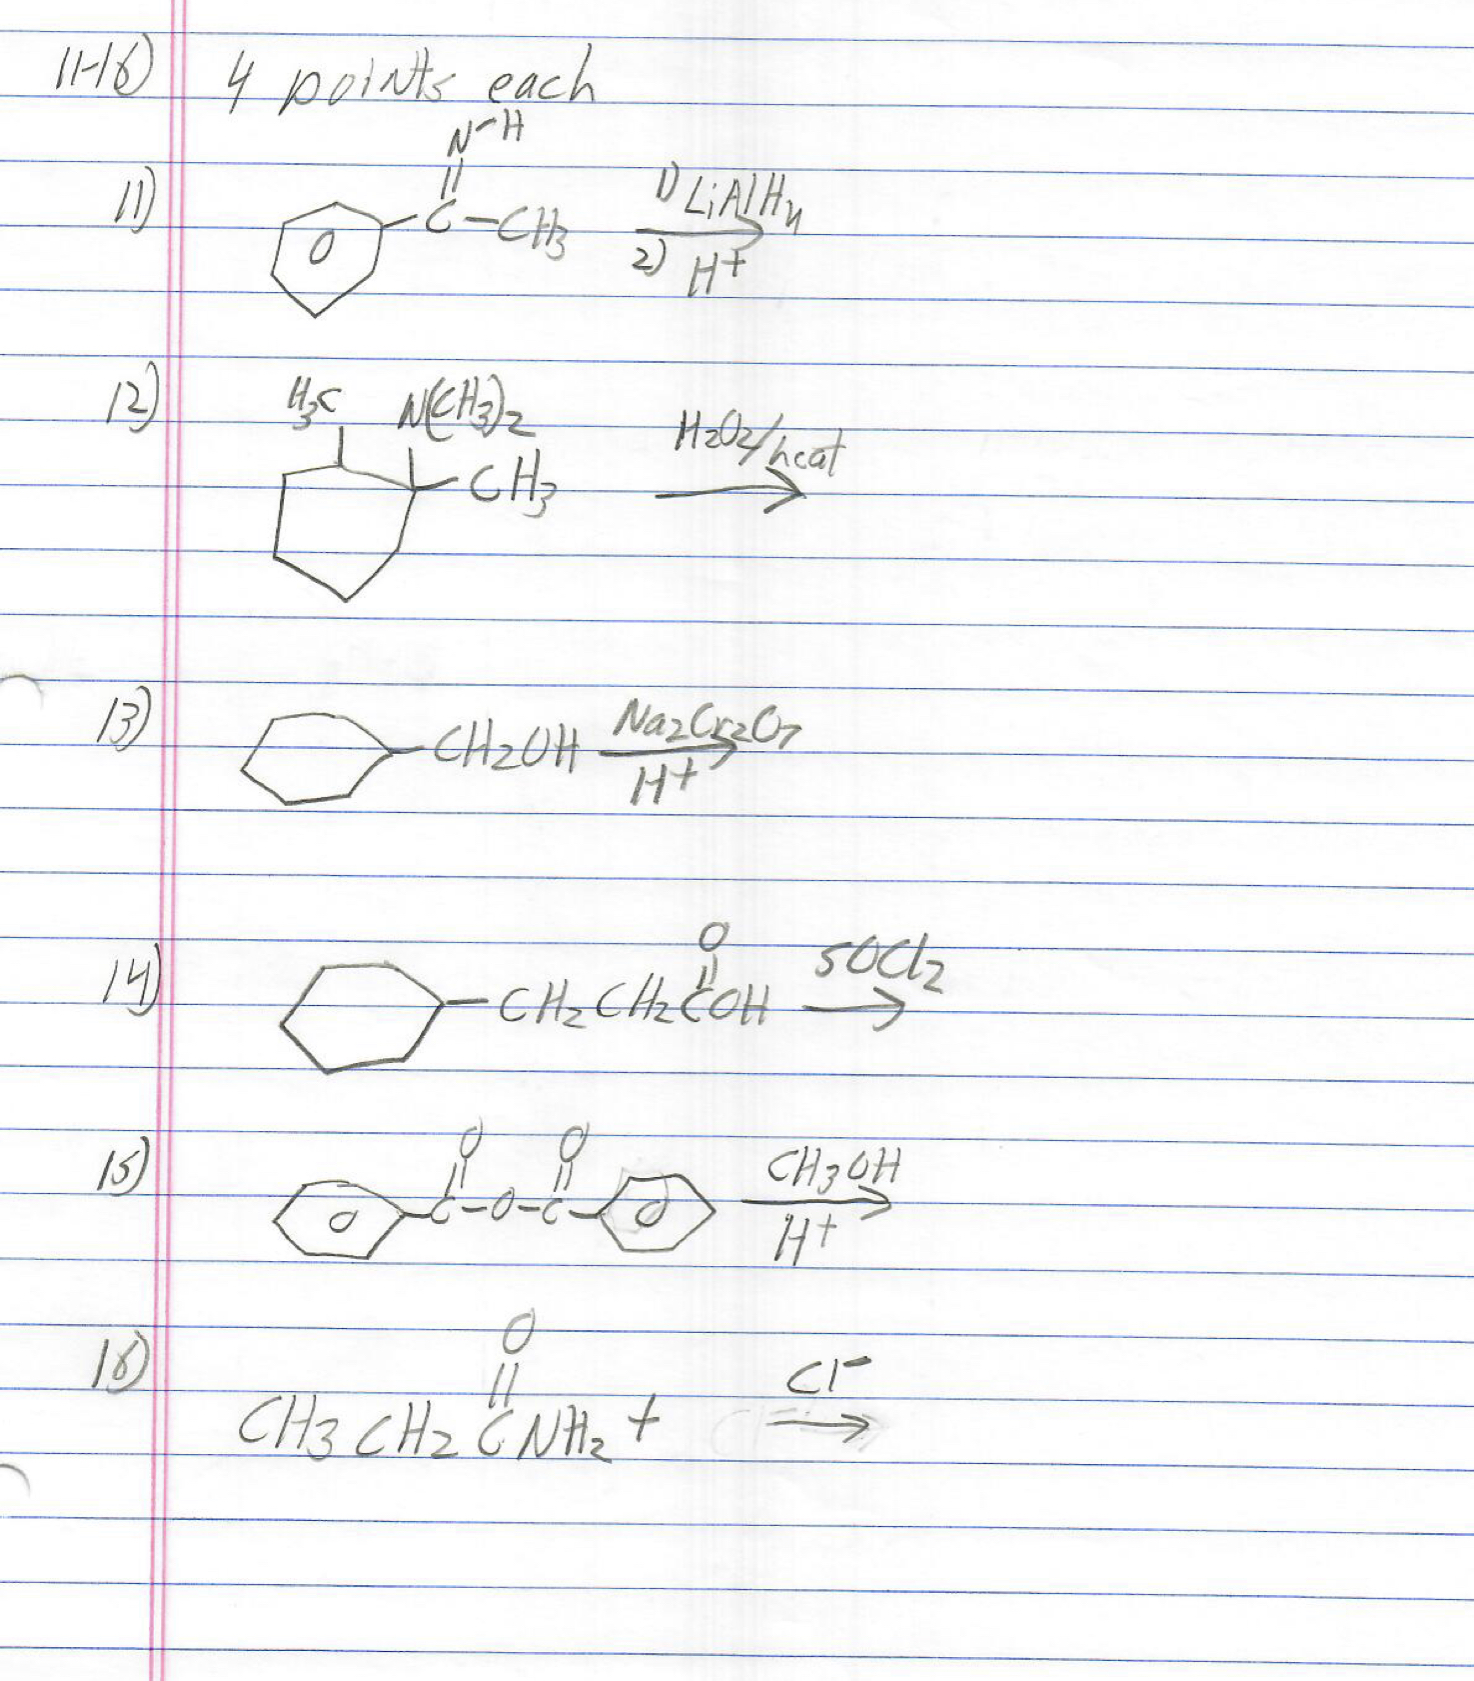 11-16) 4 points each
N-H
||
11) C-CH3 1) LiAlH4
2) H+
12) H3C N(CH3)2 H2O2/heat
CH3
13) CH2OH Na2Cr2O7
H+
O
||
14) CH2CH2COH SOCl2
O O
|| ||
15) C-O-C CH3OH
H+
O
||
16) CH3CH2CNH2 + Cl-